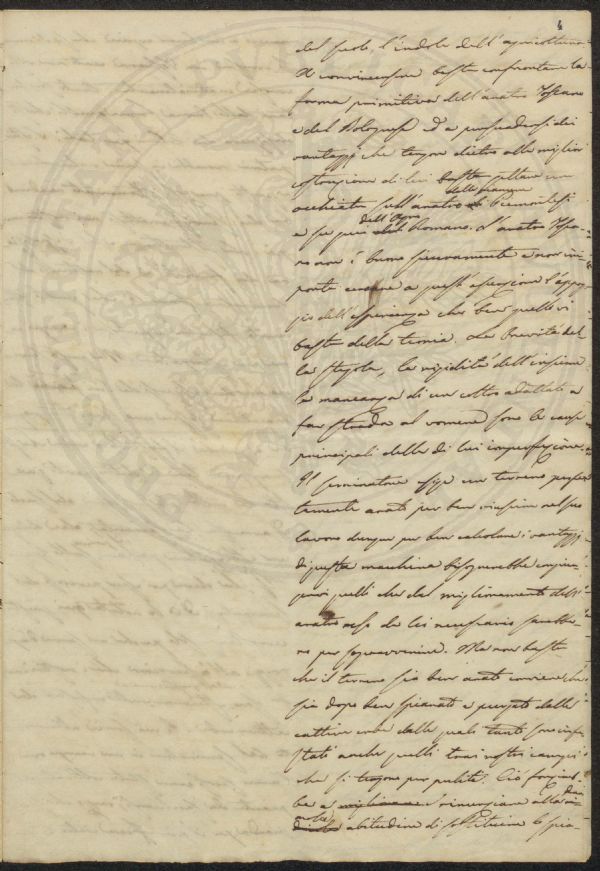 4
del suolo, l'indole dell'agricoltura.
A convincersene basta confrontare la
forma primitiva dell'aratro Toscano
e del Bolognese ed a persuadersi dei
vantaggi che tengon dietro alla miglior
costruzione di lui basta gettare un
delle
occhiata sull'aratro Piemontese
dell'Agro
e se poi Romano. L'aratro Tosca-
no non è buono sicuramente e non im-
porta a quest' l'appog-
gio dell'esperienza che ben quello vi
basta della teoria. La brevità del-
la Stegola, la rigidità dell'insieme
la mancanza di un coltro adattato a
far strada al vomere sono le cause
principali della di lui imperfezione.
Il seminatore esige un terreno perfet-
tamente arato per ben riuscire nel suo
lavoro dunque per ben calcolare i vantaggi
di questa macchina bisognerebbe
quelli che dal miglioramento dell'
aratro reso da lei necessario sarebbe-
ro per sopravvenire. Ma non basta
che il terreno sia ben arato conviene che
sia dopo ben spianato e purgato dalle
cattive erbe dalle quali tanto sono infe-
stati anche quelli trai nostri campi
che si tengono per puliti. Ciò
be a rinunziare alla
abitudine di sostituire le